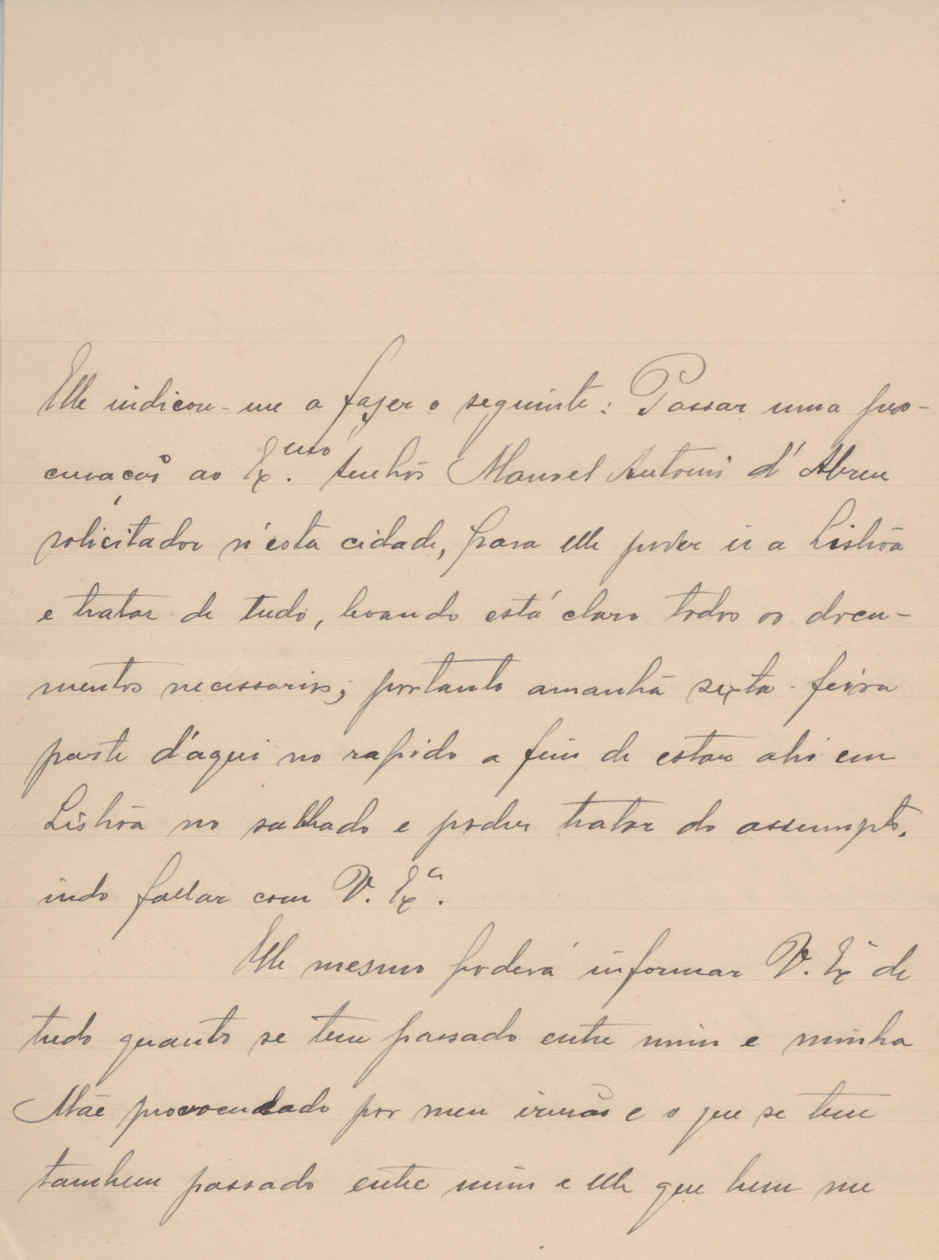 Elle indicou-me a fazer o seguinte: Passar uma pro-
curação ao Ex.mo Senhor Manoel Antonio d'Abreu
solicitador n'esta cidade, para elle poder ir a Lisbôa
e tratar de tudo, levando está claro todos os docu-
mentos necessarios; portanto amanhã sexta-feira
parte d'aqui no rapido a fim de estar ahi em
Lisbôa no sabbado e poder tratar do assumpto,
indo fallar com V. Ex.a.
Elle mesmo poderá informar V. Ex.a de
tudo quanto se tem passado entre mim e minha
Mãe por meu irmão e o que se tem
tambem passado entre mim e elle que bem me